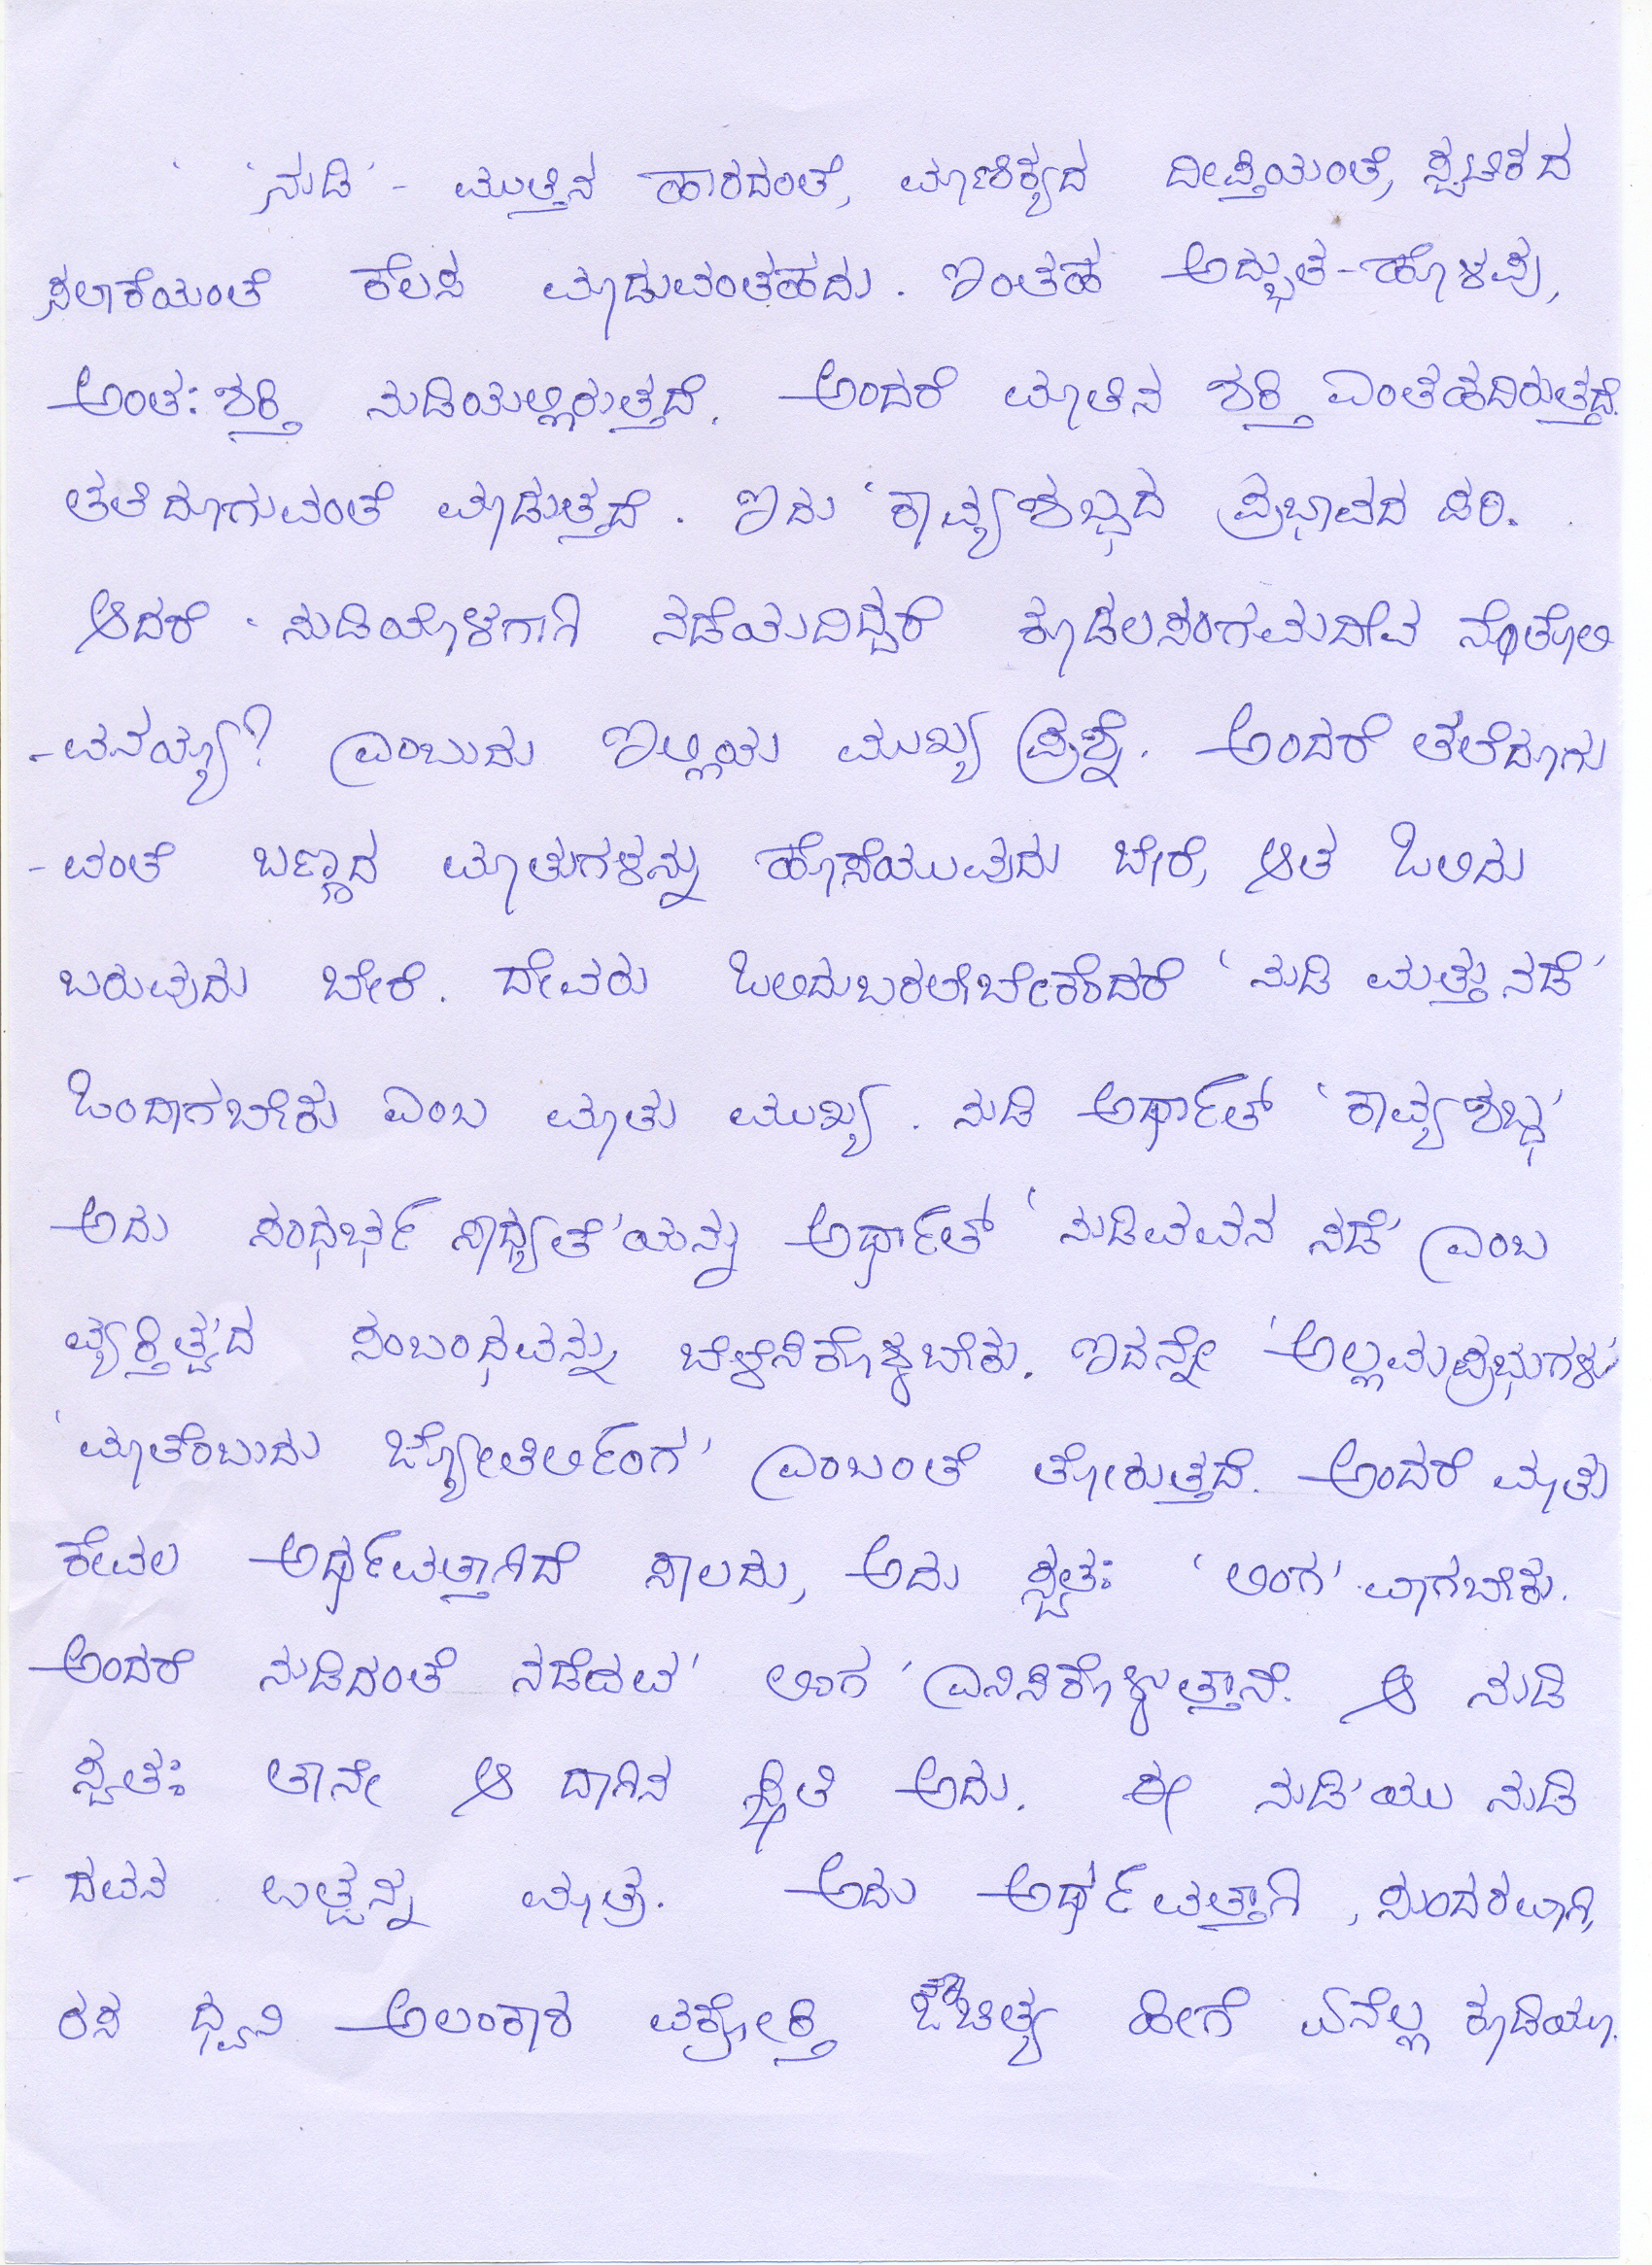 ‘ ‘ನುಡಿ’ - ಮುತ್ತಿನ ಹಾರದಂತೆ, ಮಾಣಿಕ್ಯದ ದೀಪ್ತಿಯಂತೆ, ಸ್ಪಟಿಕದ
ಸಲಾಕೆಯಂತೆ ಕೆಲಸ ಮಾಡುವಂತಹದು. ಇಂತಹ ಅದ್ಭುತ - ಹೊಳವು,
ಅಂತ: ಶಕ್ತಿ ನುಡಿಯಲ್ಲಿರುತ್ತದೆ. ಅಂದರೆ ಮಾತಿನ ಶಕ್ತಿ ಎಂತಹದಿರುತ್ತದೆ.
ತಲೆದೂಗುವಂತೆ ಮಾಡುತ್ತದೆ. ಇದು ‘ಕಾವ್ಯಶಬ್ಧದ ಪ್ರಭಾವದ ಪರಿ.
ಆದರೆ ‘ ನುಡಿಯೊಳಗಾಗಿ ನಡೆಯದಿದ್ದರೆ ಕೂಡಲಸಂಗಮದೇವ ನೆಂತೊಲಿ
-ವನಯ್ಯ? ಎಂಬುದು ಇಲ್ಲಿಯ ಮುಖ್ಯ ಪ್ರಶ್ನೆ. ಅಂದರೆ ತಲೆದೂಗು
-ವಂತೆ ಬಣ್ಣದ ಮಾತುಗಳನ್ನು ಹೊಸೆಯುವುದು ಬೇರೆ, ಆತ ಒಲಿದು
ಬರುವುದು ಬೇರೆ. ದೇವರು ಒಲಿದುಬರಲೇಬೇಕೆಂದರೆ ‘ ನುಡಿ ಮತ್ತು ನಡೆ’
ಒಂದಾಗಬೇಕು ಎಂಬ ಮಾತು ಮುಖ್ಯ. ನುಡಿ ಅರ್ಥಾತ್ ‘ಕಾವ್ಯಶಬ್ಧ’
ಅದು ಸಂಧರ್ಭ ಸಾಧ್ಯತೆ’ಯನ್ನು ಅರ್ಥಾತ್ ‘ ನುಡಿವವನ ನಡೆ’ ಎಂಬ
ವ್ಯಕ್ತಿತ್ವ’ದ ಸಂಬಂಧವನ್ನು ಬೆಳೆಸಿಕೊಳ್ಳಬೇಕು. ಇದನ್ನೇ ‘ಅಲ್ಲಮಪ್ರಭುಗಳು’
‘ಮಾತೆಂಬುದು ಜ್ಯೋತಿರ್ಲಿಂಗ’ ಎಂಬಂತೆ ತೋರುತ್ತದೆ. ಅಂದರೆ ಮಾತು
ಕೇವಲ ಅರ್ಥವತ್ತಾಗಿದೆ ಸಾಲದು, ಅದು ಸ್ವತ: ‘ ಲಿಂಗ’ ವಾಗಬೇಕು.
ಅಂದರೆ ನುಡಿದಂತೆ ನಡೆದವ’ ಲಿಂಗ ’ಎನಿಸಿಕೊಳ್ಳುತ್ತಾನೆ. ಆ ನುಡಿ
ಸ್ವತ: ತಾನೇ ಆ ದಾಗಿನ ಸ್ಥಿತಿ ಅದು. ಈ ನುಡಿ’ಯು ನುಡಿ
-ದವನ ಉತ್ಪನ್ನ ಮಾತ್ರ. ಅದು ಅರ್ಥವತ್ತಾಗಿ, ಸುಂದರವಾಗಿ,
ರಸ ಧ್ವನಿ ಅಲಂಕಾರ ವಕ್ರೋಕ್ತಿ ಔಚಿತ್ಯ ಹೀಗೆ ಏನೆಲ್ಲ ಕೂಡಿಯೂ.